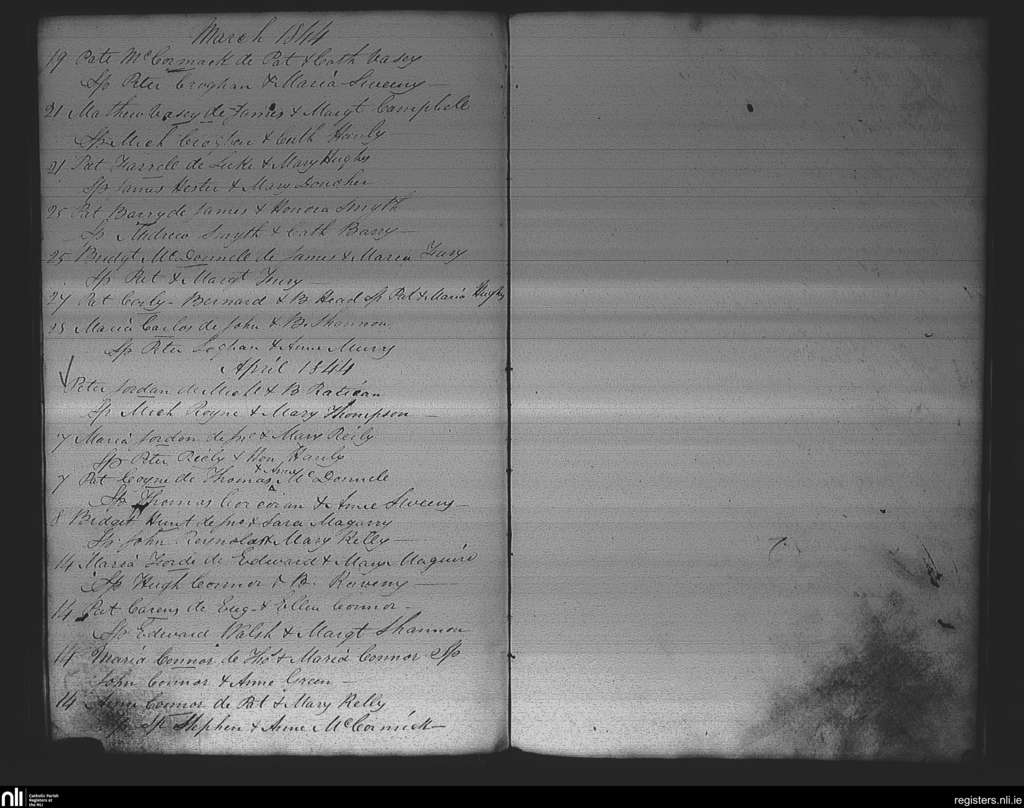 March 1844
19 Pate McCormack de Pat & Cath Vasey
Sp Peter Croghan & Maria Sweeny
21 Mathew Vasey de James & Margt Campbell
Sp Mich Croghan & Cath Hanly
21 Pat Farrell de Luke & Mary Hughs
Sp James Hester & Mary Donoher
25 Pat Barry de James & Honora Smyth
Sp Andrew Smyth & Cath Barry
25 Bridgt McDonnele de James & Maria Fury
Sp Pat & Margt Fury
27 Pat Corly - Bernard & B Head Sp Pat & Maria Hughs
28 Maria Carlos de John & B. Shannon
Sp Peter Loghan & Anne Murry
April 1844
Peter Jordan de Michl & B Ratican
Sp Mich Royne & Mary Thompson
7 Maria Jordon de Jno & Mary Reily
Sp Peter Reily & Hon Hanly
7 Pat Coyne de Thomas & Anne McDonnele
Sp Thomas Corcoran & Anne Sweeny
8 Bridget Hunt de Jno & Sara Magany
Sp John Reynolds & Mary Kelly
14 Maria Forde de Edward & Mary Maguire
Sp Hugh Connor & B. Raveny
14 Pat Carens de Eug. & Ellen Connor
Sp Edward Walsh & Margt Shannon
14 Maria Connor de Thos & Maria Connor Sp
John Connor & Anne Green
14 Anne Connor de Pat & Mary Kelly
Sp Sp Stephen & Anne McCormick
nli Catholic Parish
Registers at
the NLI
registers.nli.ie